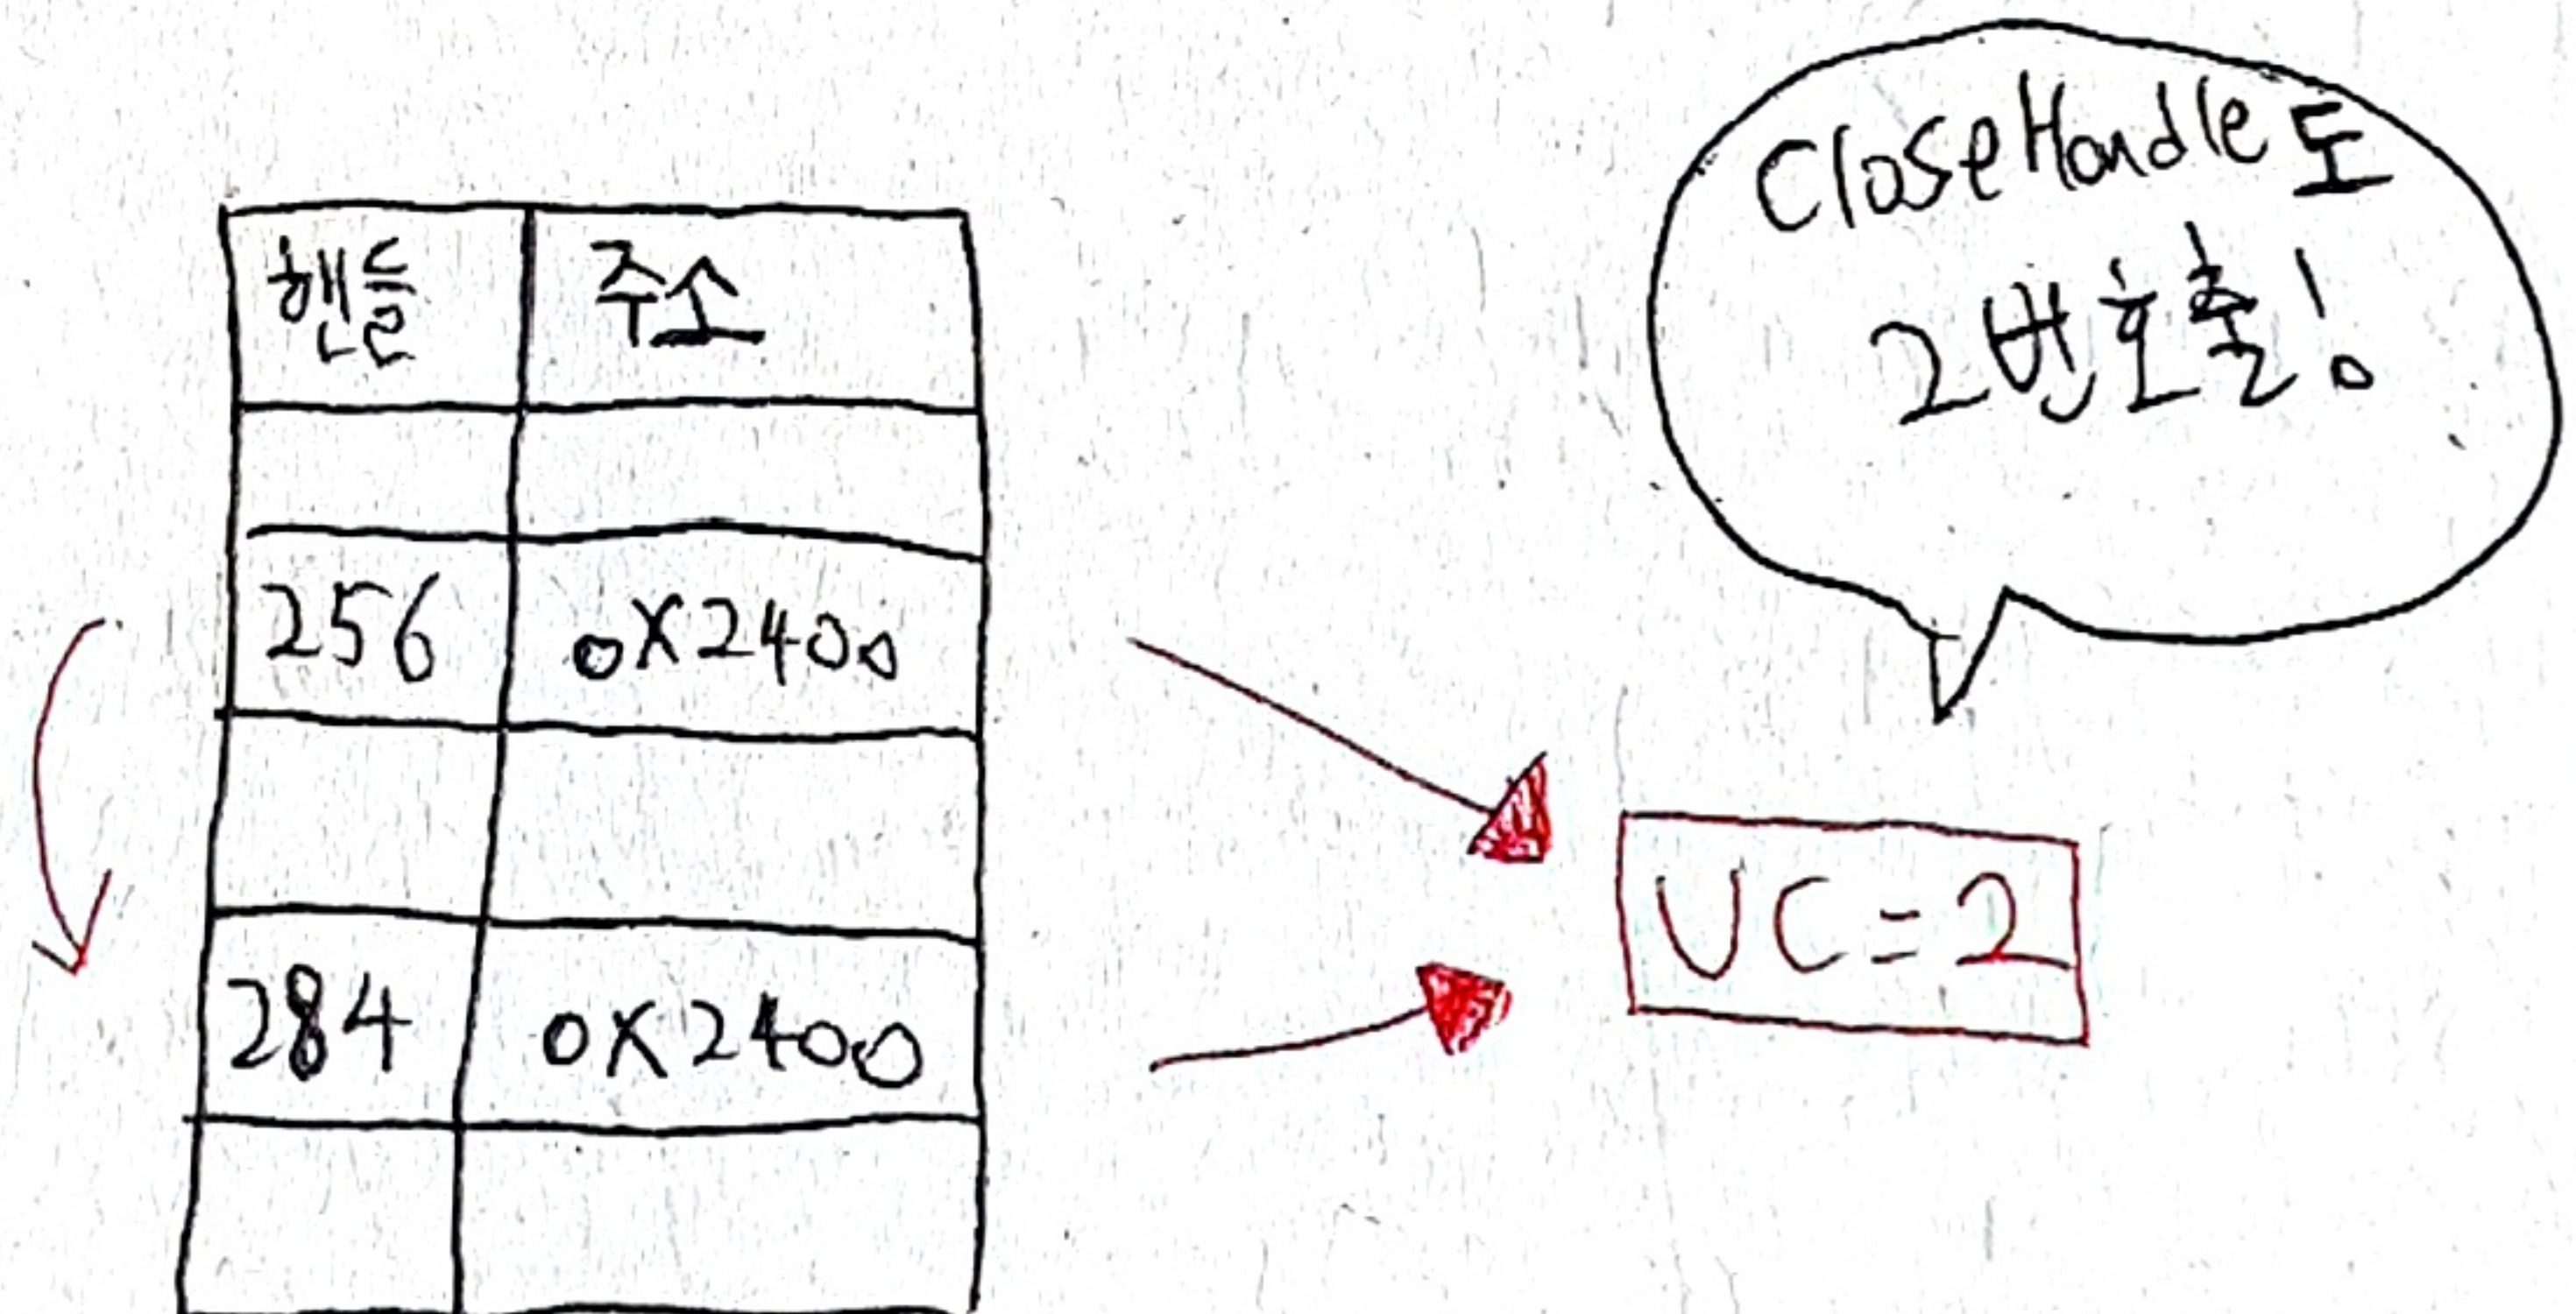 CloseHandle도
2번호출!
핸들 주소
256 0x2400
284 0x2400
UC=2